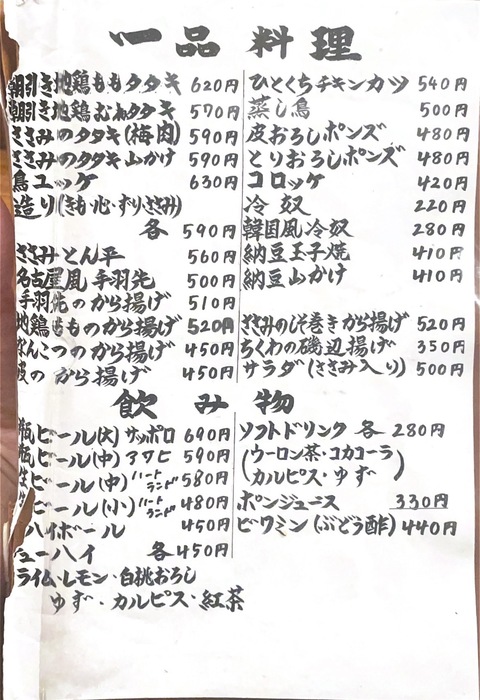 一品 料理
朝引き地鶏ももタタキ 620円
朝引き地鶏むねタタキ 570円
ささみのタタキ(梅肉) 590円
ささみのタタキ山かけ 590円
鳥ユッケ 630円
造り(きも・心・ずり・ささみ)
各 590円
ささみとん平 560円
名古屋風 手羽先 500円
手羽先のから揚げ 510円
地鶏ももの から揚げ 520円
なんこつの から揚げ 450円
皮の から揚げ 450円
ひとくちチキンカツ 540円
蒸し鳥 500円
皮おろしポンズ 480円
とりおろしポンズ 480円
コロッケ 420円
冷 奴 220円
韓国風 冷奴 280円
納豆玉子焼 410円
納豆山かけ 410円
ささみのしそ巻きから揚げ 520円
ちくわの磯辺揚げ 350円
サラダ(ささみ入り) 500円
飲 み 物
瓶ビール(大) サッポロ 690円
瓶ビール(中) アサヒ 590円
生ビール(中) ハートランド 580円
生ビール(小) ハートランド 480円
ハイボール 450円
ューハイ 各450円
ライム・レモン・白桃おろし
ゆず・カルピス・紅茶
ソフトドリンク 各 280円
(ウーロン茶・コカコーラ
カルピス・ゆず)
ポンジュース 330円
ビワミン(ぶどう酢) 440円